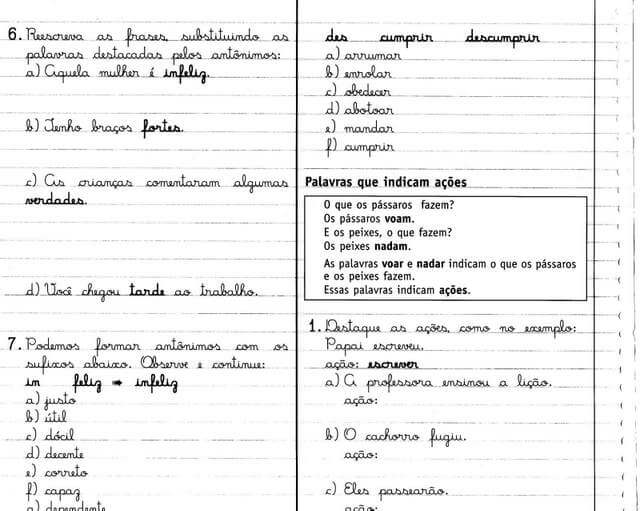 6. Reescreva as frases, substituindo as
palavras destacadas pelos antônimos:
a) Aquela mulher é infeliz.
b) Tenho braços fortes.
c) As crianças comentaram algumas
verdades.
d) Você chegou tarde ao trabalho.
7. Podemos formar antônimos com os
sufixos abaixo. Observe e continue:
in feliz ➡ infeliz
a) justo
b) útil
c) dócil
d) decente
e) correto
f) capaz
g) dependente
des cumprir descumprir
a) arrumar
b) enrolar
c) obedecer
d) abotoar
e) mandar
f) cumprir
Palavras que indicam ações
O que os pássaros fazem?
Os pássaros voam.
E os peixes, o que fazem?
Os peixes nadam.
As palavras voar e nadar indicam o que os pássaros
e os peixes fazem.
Essas palavras indicam ações.
1. Destaque as ações, como no exemplo:
Papai escreveu.
ação: escrever
a) A professora ensinou a lição.
ação:
b) O cachorro fugiu.
ação:
c) Eles passearão.
ação: